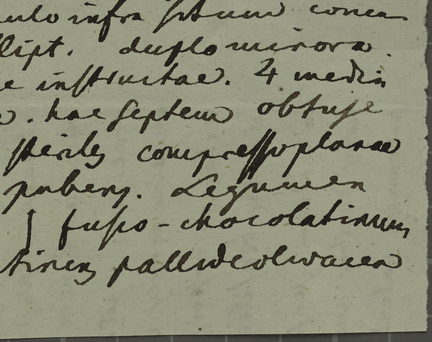 infra situm conca
duplo minora.
e instructae. 4 media
. hae septem obtuse
steriles compressoplanae
pubens. Legumen
fusco-chocolatinum
pallideolivacea